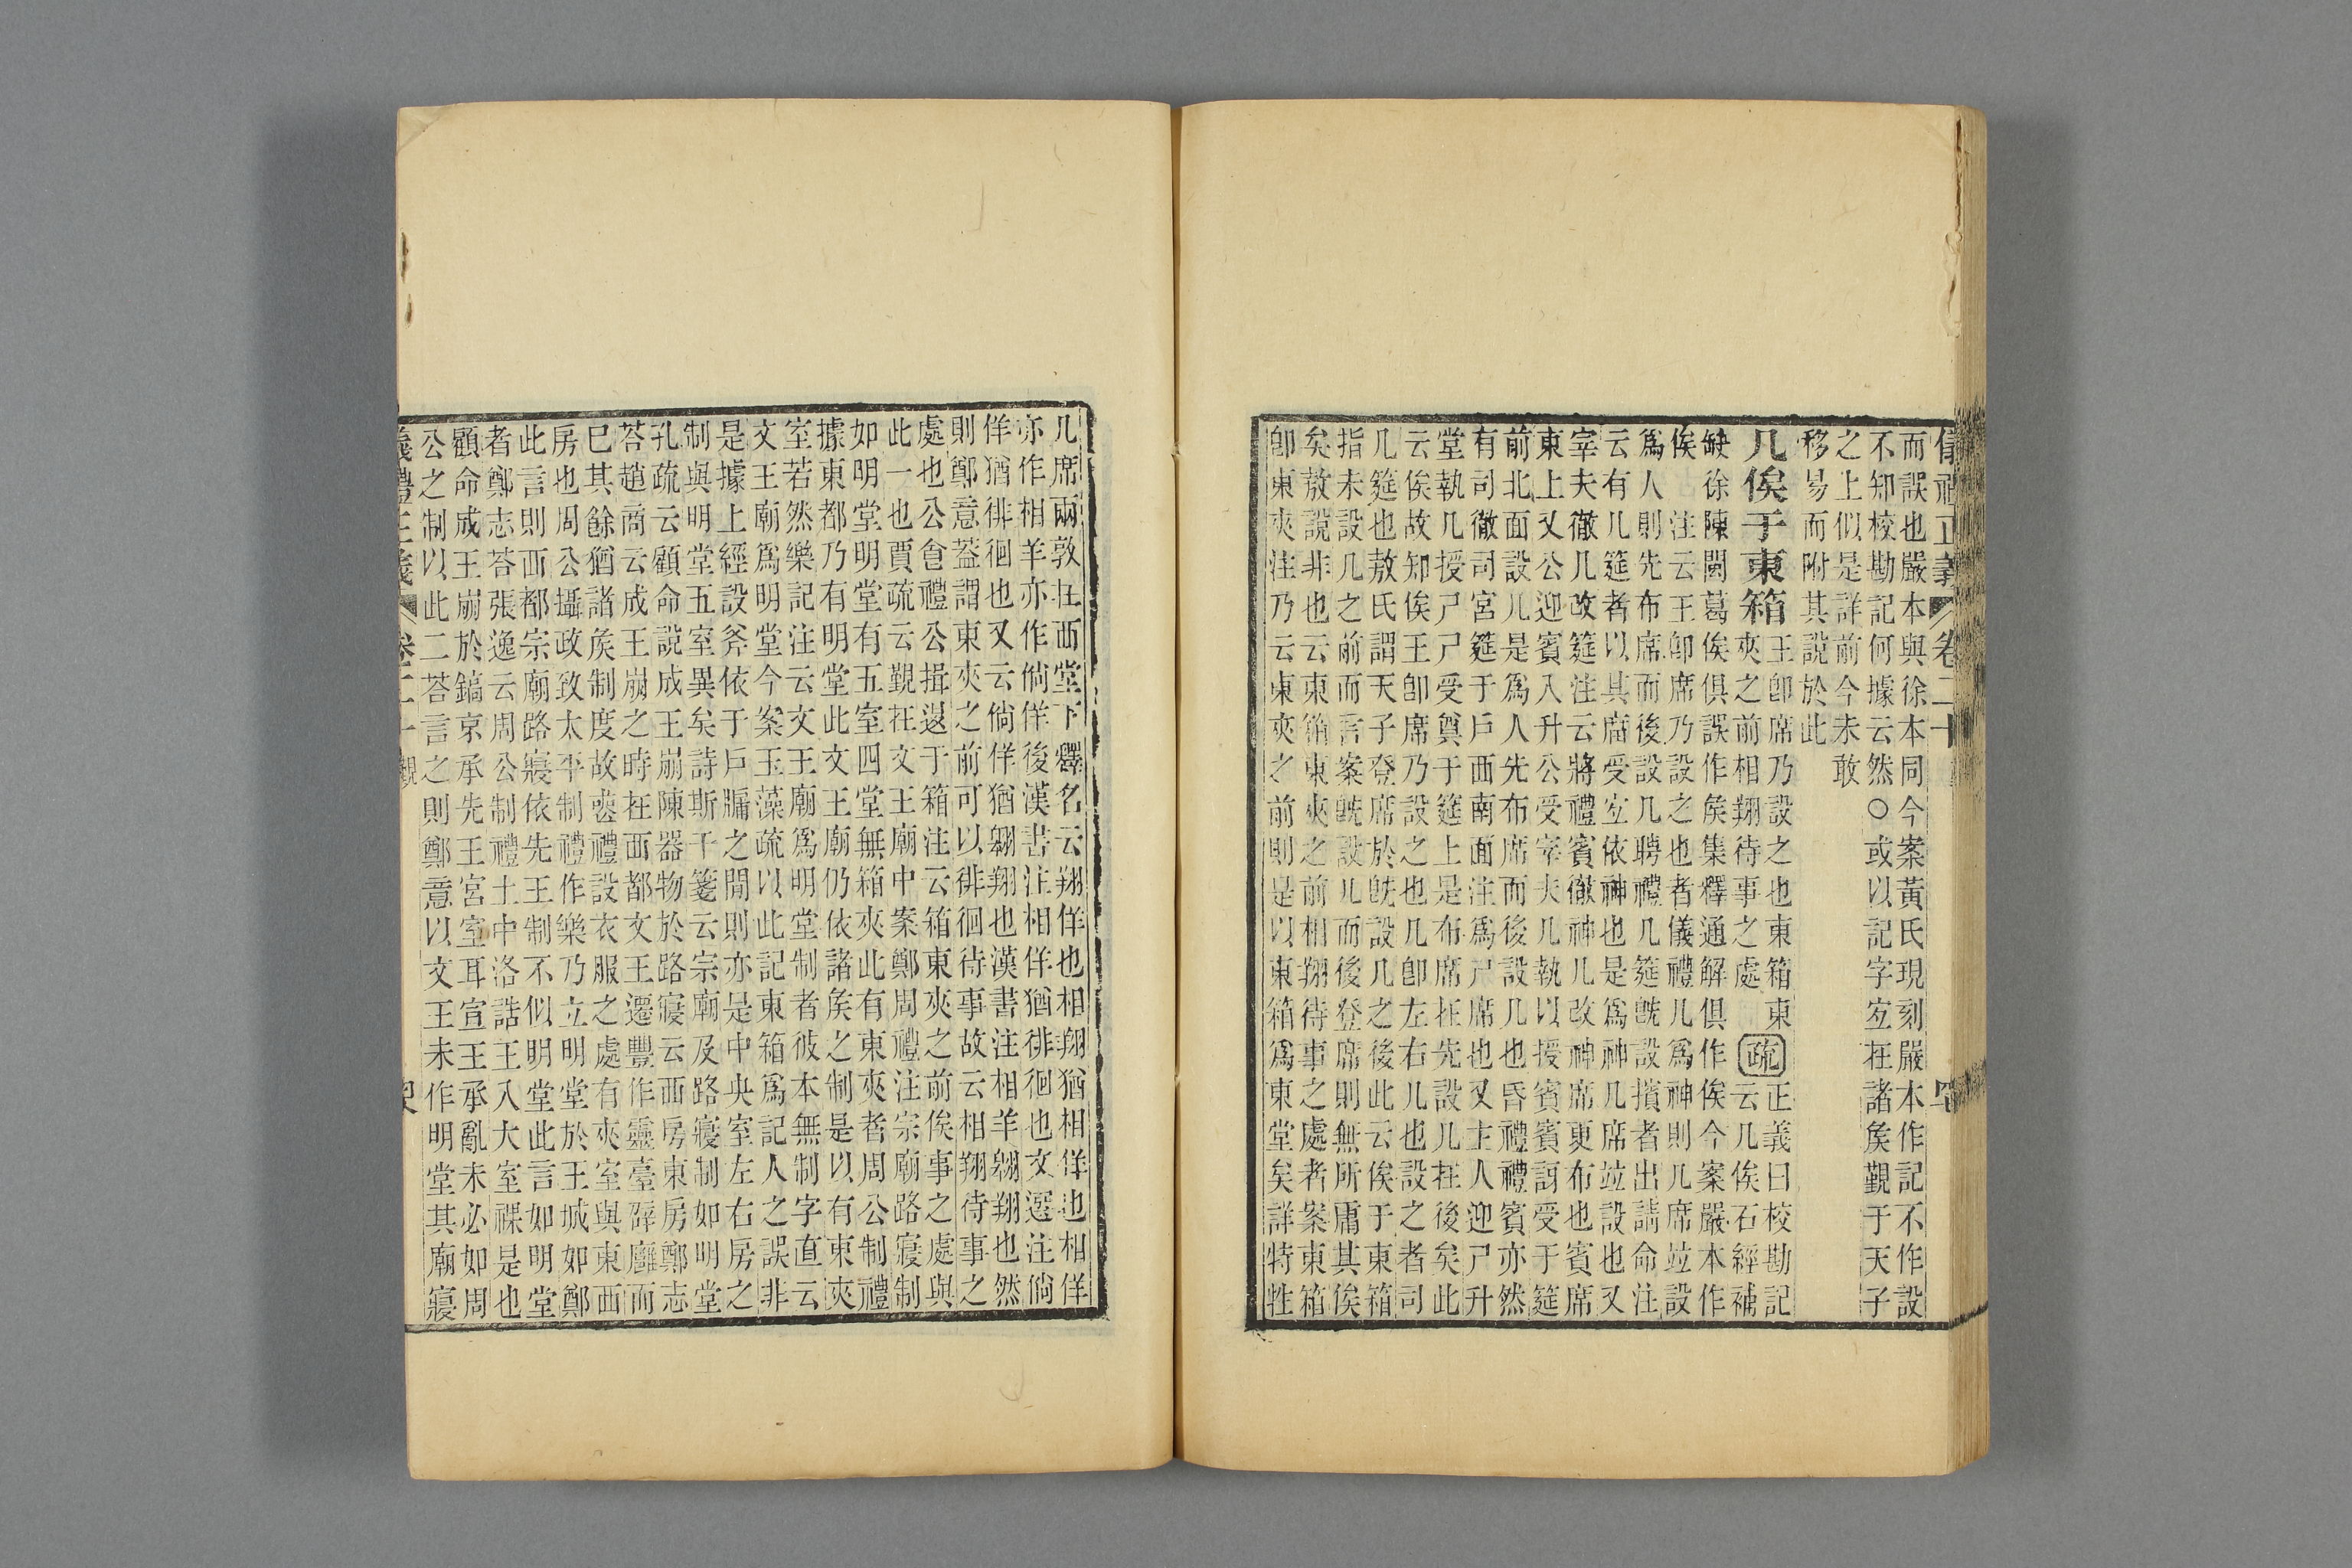 儀禮正義 卷二十
而誤也嚴本與徐本同今案黃氏現刻嚴本作記不作設
不知校勘記何據云然○或以記字宐在諸矦覲于天子
之上似是詳前今未敢
移易而附其說於此
几俟于東箱
王卽席乃設之也東箱東
夾之前相翔待事之處
疏
正義曰校勘記
云几俟石經補
缺徐陳閩葛俟俱誤作矦集釋通解俱作俟今案嚴本作
俟 注云王卽席乃設之也者儀禮几爲神則几席竝設
爲人則先布席而後設几聘禮几筵旣設擯者出請命注
云有几筵者以其廟受宐依神也是爲神几席竝設也又
宰夫徹几改筵注云將禮賓徹神几改神席更布也賓席
東上又公迎賓入升公受宰夫几執以授賓賓訝受于筵
前北面設几是爲人先布席而後設几也昏禮禮賓亦然
有司徹司宮筵于戶西南面注爲尸席也又主人迎尸升
堂執几授尸尸受奠于筵上是布席在先設几在後矣此
云俟故知俟王卽席乃設之也几卽左右几也設之者司
几筵也敖氏謂天子登席於旣設几之後此云俟于東箱
指未設几之前而言案旣設几而後登席則無所庸其俟
矣敖說非也云東箱東夾之前相翔待事之處者案東箱
卽東夾注乃云東夾之前則是以東箱爲東堂矣詳特牲
几席兩敦在西堂下釋名云翔佯也相翔猶相佯也相佯
亦作相羊亦作倘佯後漢書注相佯猶徘徊也文選注倘
佯猶徘徊也又云倘佯猶翱翔也漢書注相羊翱翔也然
則鄭意蓋謂東夾之前可以徘徊待事故云相翔待事之
處也公食禮公揖退于箱注云箱東夾之前俟事之處與
此一也賈疏云覲在文王廟中案鄭周禮注宗廟路寢制
如明堂明堂有五室四堂無箱夾此有東夾者周公制禮
據東都乃有明堂此文王廟仍依諸矦之制是以有東夾
室若然樂記注云文王廟爲明堂制者彼本無制字直云
文王廟爲明堂今案玉藻疏以此記東箱爲記人之誤非
是據上經設斧依于戶牖之閒則亦是中央室左右房之
制與明堂五室異矣詩斯干箋云宗廟及路寢制如明堂
孔疏云顧命說成王崩陳器物於路寢云西房東房鄭志
荅趙商云成王崩之時在西都文王遷豐作靈臺辟廱而
已其餘猶諸矦制度故喪禮設衣服之處有夾室與東西
房也周公攝政致太平制禮作樂乃立明堂於王城如鄭
此言則西都宗廟路寢依先王制不似明堂此言如明堂
者鄭志荅張逸云周公制禮土中洛誥王入大室祼是也
顧命成王崩於鎬京承先王宮室耳宣王承亂未必如周
公之制以此二荅言之則鄭意以文王未作明堂其廟寢